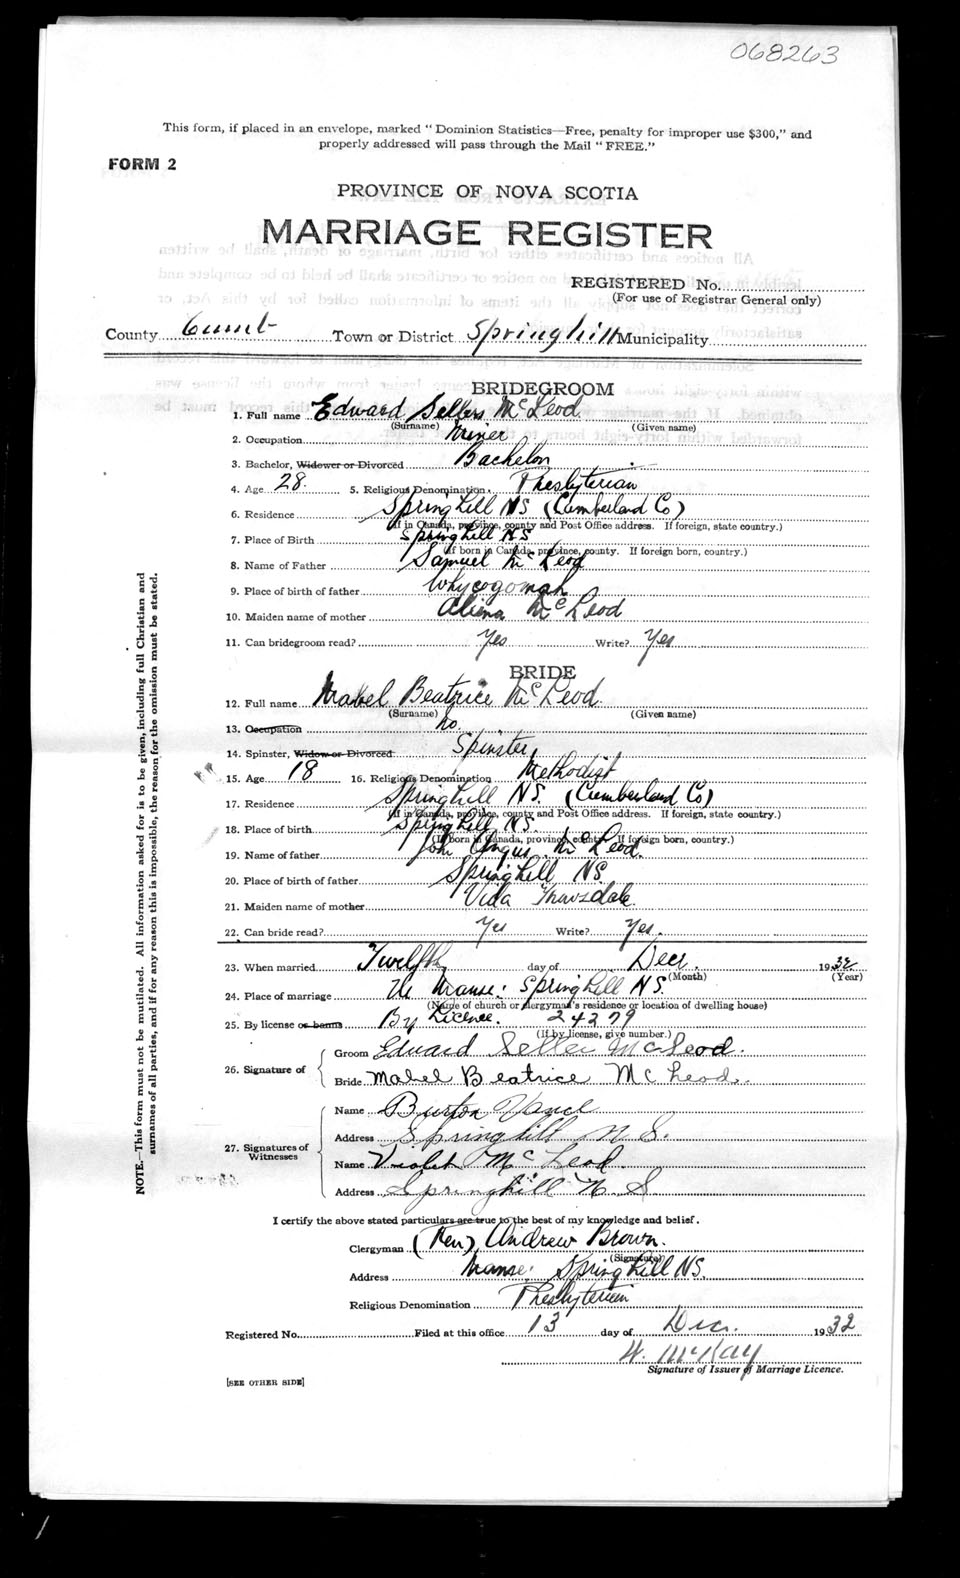 068263
This form, if placed in an envelope, marked "Dominion Statistics—Free, penalty for improper use $300," and
properly addressed will pass through the Mail "FREE."
FORM 2
PROVINCE OF NOVA SCOTIA
MARRIAGE REGISTER
REGISTERED No.
(For use of Registrar General only)
County Cumb Town or District Springhill Municipality
BRIDEGROOM
1. Full name Edward Sellers McLeod
(Surname) (Given name)
2. Occupation Miner
3. Bachelor, Widower or Divorced Bachelor
4. Age 28 5. Religious Denomination Presbyterian
6. Residence Springhill NS (Cumberland Co)
(If in Canada, province, county and Post Office address. If foreign, state country.)
7. Place of Birth Springhill NS
(If born in Canada, province, county. If foreign born, country.)
8. Name of Father Samuel McLeod
9. Place of birth of father Whycogomah
10. Maiden name of mother McLeod
11. Can bridegroom read? Yes Write? Yes
BRIDE
12. Full name Mabel Beatrice McLeod
(Surname) (Given name)
13. Occupation no
14. Spinster, Widow or Divorced Spinster
15. Age 18 16. Religious Denomination Methodist
17. Residence Springhill NS. (Cumberland Co)
(If in Canada, province, county and Post Office address. If foreign, state country.)
18. Place of birth Springhill NS.
(If born in Canada, province, county. If foreign born, country.)
19. Name of father John Angus McLeod.
20. Place of birth of father Springhill NS
21. Maiden name of mother Vida
22. Can bride read? Yes Write? Yes.
23. When married Twelfth day of Decr. 1932
(Month) (Year)
24. Place of marriage The Manse: Springhill NS.
(Name of church or clergyman's residence or location of dwelling house)
25. By license or banns By Licence. 24279
(If by license, give number.)
26. Signature of
Groom Edward Seller McLeod.
Bride Mabel Beatrice McLeod.
27. Signatures of Witnesses
Name Burton Vance
Address Springhill N.S.
Name Violet McLeod
Address Springhill N.S
I certify the above stated particulars are true to the best of my knowledge and belief.
Clergyman (Rev) Andrew Brown.
(Signature)
Address Manse: Springhill NS.
Religious Denomination Presbyterian
Registered No. Filed at this office 13 day of Dec. 1932
W. McKay
Signature of Issuer of Marriage Licence.
[SEE OTHER SIDE]
NOTE.—This form must not be mutilated. All information asked for is to be given, including full Christian and
surnames of all parties, and if for any reason this is impossible, the reason for the omission must be stated.